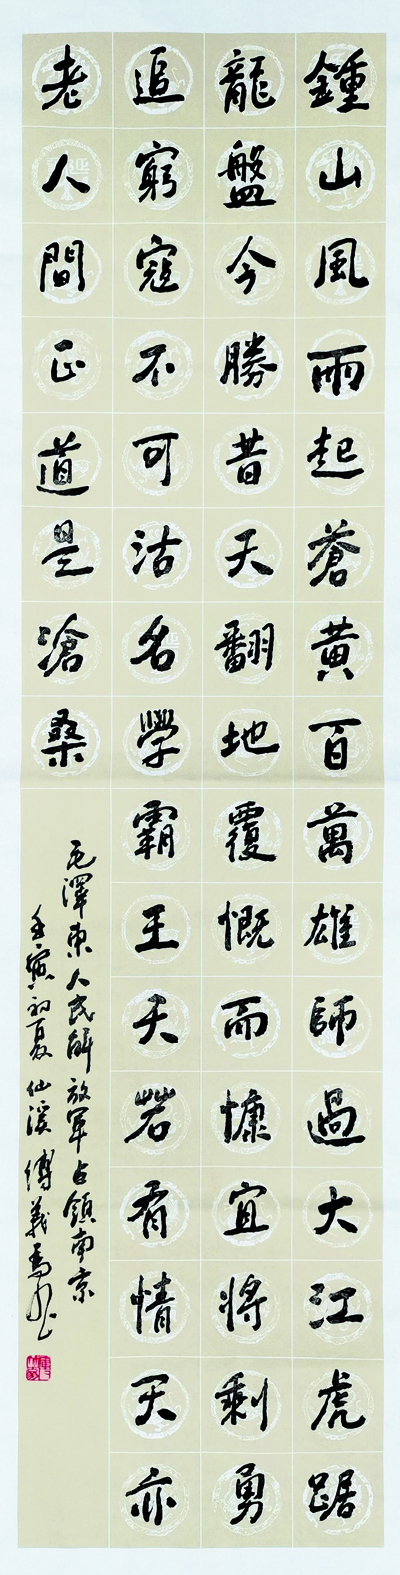 鍾山風雨起蒼黃百萬雄師過大江虎踞
龍盤今勝昔天翻地覆慨而慷宜將剩勇
追窮寇不可沽名學霸王天若有情天亦
老人間正道是滄桑
毛澤東人民解放軍占領南京
壬寅初夏仙溪傅義書